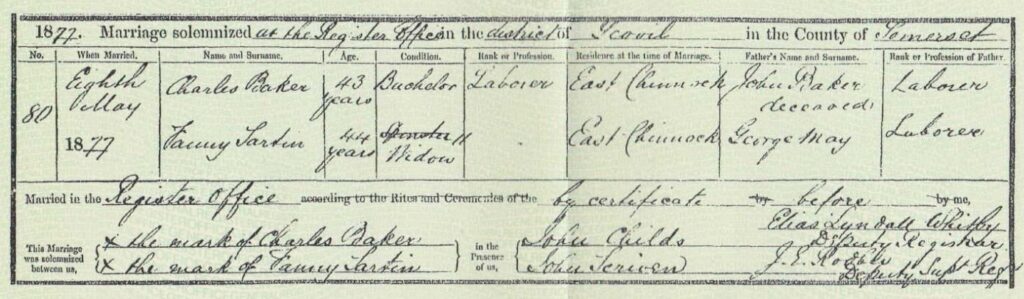 1877. Marriage solemnized at the Register Office in the district of Yeovil in the County of Somerset
No. When Married. Name and Surname. Age. Condition. Rank or Profession. Residence at the time of Marriage. Father's Name and Surname. Rank or Profession of Father.
80 Eighth May 1877 Charles Baker 43 years Bachelor Laborer East Chinnock John Baker deceased Laborer
Fanny Sartin 44 years Spinster Widow East Chinnock George May Laborer
Married in the Register Office according to the Rites and Ceremonies of the by certificate by before by me,
This Marriage was solemnized between us, x the mark of Charles Baker
x the mark of Fanny Sartin
in the Presence of us, John Childs
John Scriven
Elias Lyndall Whitby
Deputy Registrar
J. E.
Deputy Supt Regr